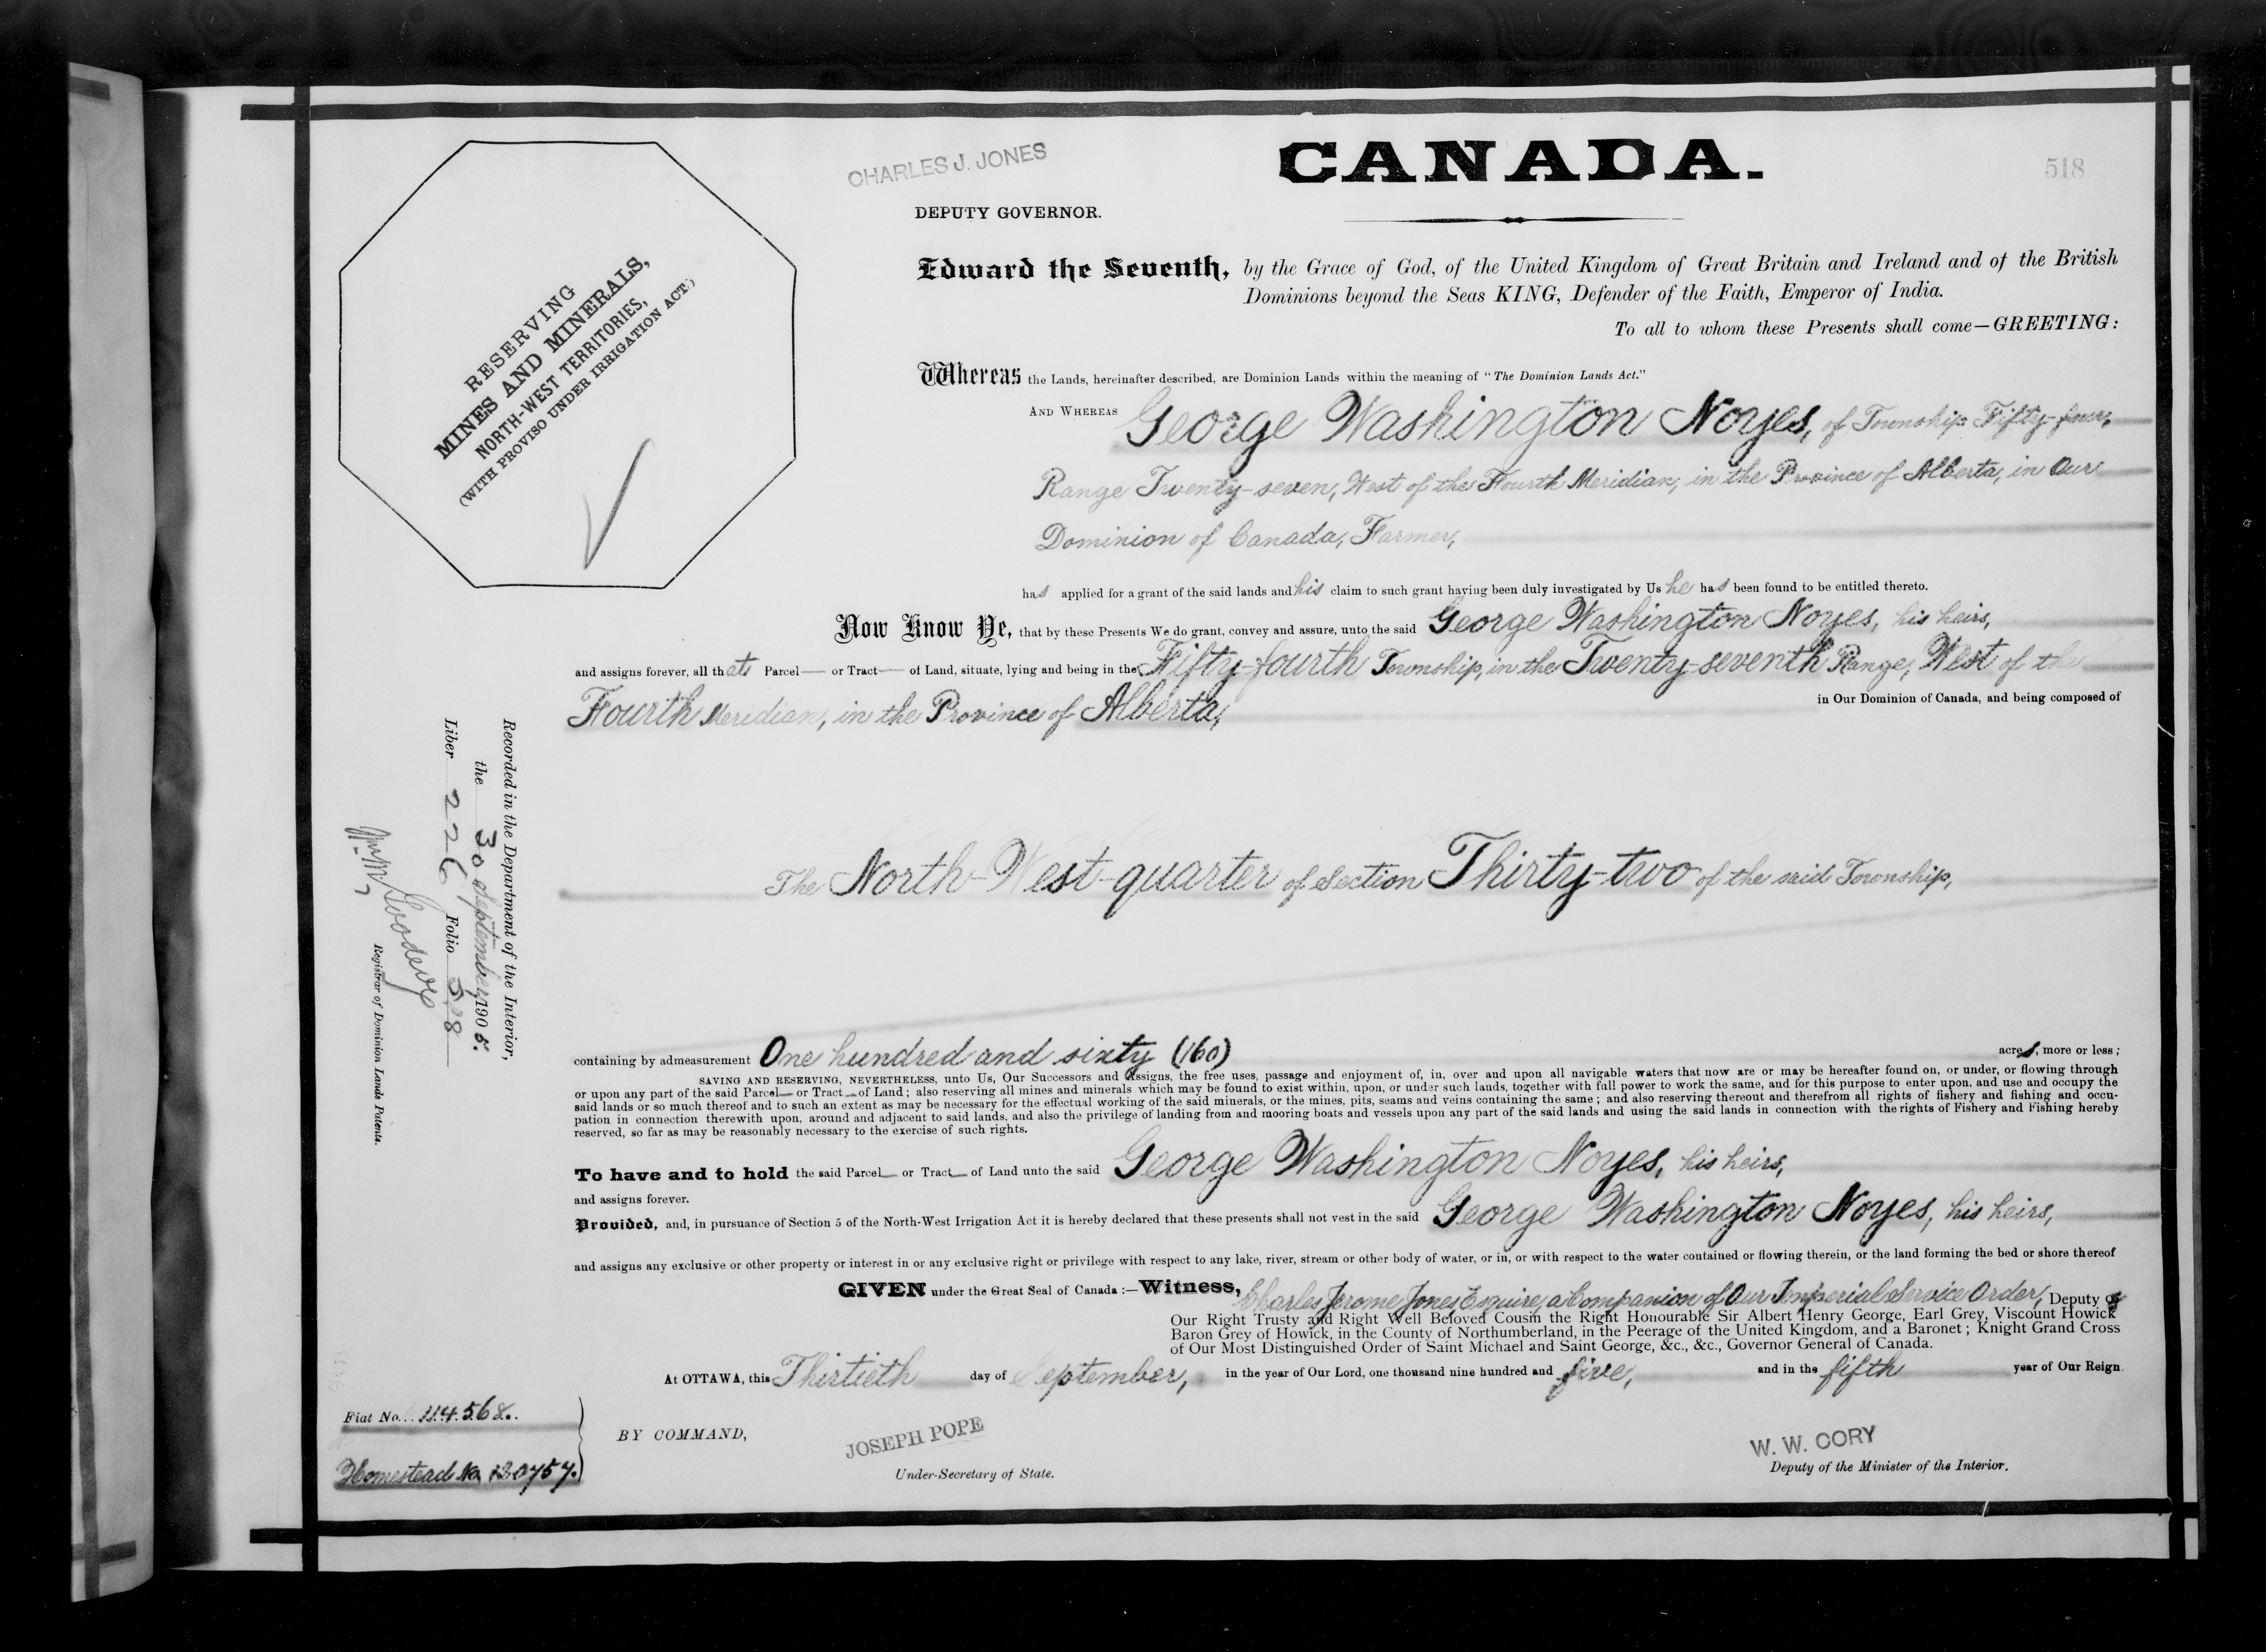 CHARLES J. JONES
CANADA.
518
DEPUTY GOVERNOR.
RESERVING
MINES AND MINERALS,
NORTH-WEST TERRITORIES,
(WITH PROVISO UNDER IRRIGATION ACT.)
Edward the Seventh, by the Grace of God, of the United Kingdom of Great Britain and Ireland and of the British
Dominions beyond the Seas KING, Defender of the Faith, Emperor of India.
To all to whom these Presents shall come—GREETING:
Whereas the Lands, hereinafter described, are Dominion Lands within the meaning of "The Dominion Lands Act."
AND WHEREAS George Washington Noyes, of Township Fifty-four,
Range Twenty-seven, West of the Fourth Meridian, in the Province of Alberta, in Our
Dominion of Canada, Farmer,
has applied for a grant of the said lands and his claim to such grant having been duly investigated by Us he has been found to be entitled thereto.
Now Know Ye, that by these Presents We do grant, convey and assure, unto the said George Washington Noyes, his heirs,
and assigns forever, all that Parcel— or Tract— of Land, situate, lying and being in the Fifty-fourth Township, in the Twenty-seventh Range, West of the
Fourth Meridian, in the Province of Alberta, in Our Dominion of Canada, and being composed of
The North-West-quarter of Section Thirty-two of the said Township,
containing by admeasurement One hundred and sixty (160) acres, more or less;
SAVING AND RESERVING, NEVERTHELESS, unto Us, Our Successors and Assigns, the free uses, passage and enjoyment of, in, over and upon all navigable waters that now are or may be hereafter found on, or under, or flowing through
or upon any part of the said Parcel— or Tract— of Land; also reserving all mines and minerals which may be found to exist within, upon, or under such lands, together with full power to work the same, and for this purpose to enter upon, and use and occupy the
said lands or so much thereof and to such an extent as may be necessary for the effectual working of the said minerals, or the mines, pits, seams and veins containing the same; and also reserving thereout and therefrom all rights of fishery and fishing and occu-
pation in connection therewith upon, around and adjacent to said lands, and also the privilege of landing from and mooring boats and vessels upon any part of the said lands and using the said lands in connection with the rights of Fishery and Fishing hereby
reserved, so far as may be reasonably necessary to the exercise of such rights.
To have and to hold the said Parcel— or Tract— of Land unto the said George Washington Noyes, his heirs,
and assigns forever.
Provided, and, in pursuance of Section 5 of the North-West Irrigation Act it is hereby declared that these presents shall not vest in the said George Washington Noyes, his heirs,
and assigns any exclusive or other property or interest in or any exclusive right or privilege with respect to any lake, river, stream or other body of water, or in, or with respect to the water contained or flowing therein, or the land forming the bed or shore thereof
GIVEN under the Great Seal of Canada:—Witness, Charles Jerome Jones, Esquire, a Companion of Our Imperial Service Order, Deputy of
Our Right Trusty and Right Well Beloved Cousin the Right Honourable Sir Albert Henry George, Earl Grey, Viscount Howick
Baron Grey of Howick, in the County of Northumberland, in the Peerage of the United Kingdom, and a Baronet; Knight Grand Cross
of Our Most Distinguished Order of Saint Michael and Saint George, &c., &c., Governor General of Canada.
At OTTAWA, this Thirtieth day of September, in the year of Our Lord, one thousand nine hundred and five, and in the fifth year of Our Reign.
BY COMMAND,
JOSEPH POPE
Under-Secretary of State.
W. W. CORY
Deputy of the Minister of the Interior.
Recorded in the Department of the Interior,
the 30 September, 1905.
Liber 226 Folio 518
Wm. M. Goodeve
Registrar of Dominion Lands Patents.
Fiat No. 114568.
Homestead No.